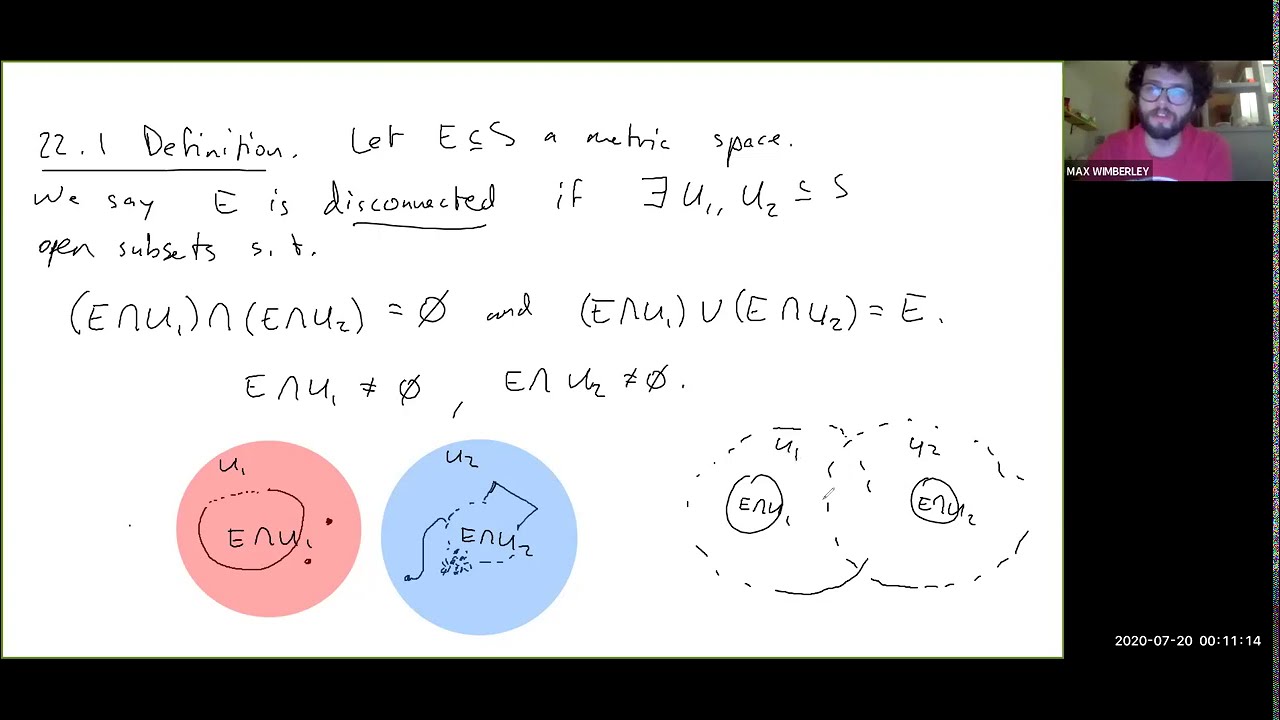 22.1 Definition. Let E ⊆ S a metric space.
We say E is disconnected if ∃ U₁, U₂ ⊆ S
open subsets s.t.
(E∩U₁)∩(E∩U₂) = ∅ and (E∩U₁)∪(E∩U₂) = E.
E∩U₁ ≠ ∅, E∩U₂ ≠ ∅.
U₁
E∩U₁
U₂
E∩U₂
U₁
E∩U₁
U₂
E∩U₂
MAX WIMBERLEY
2020-07-20 00:11:14